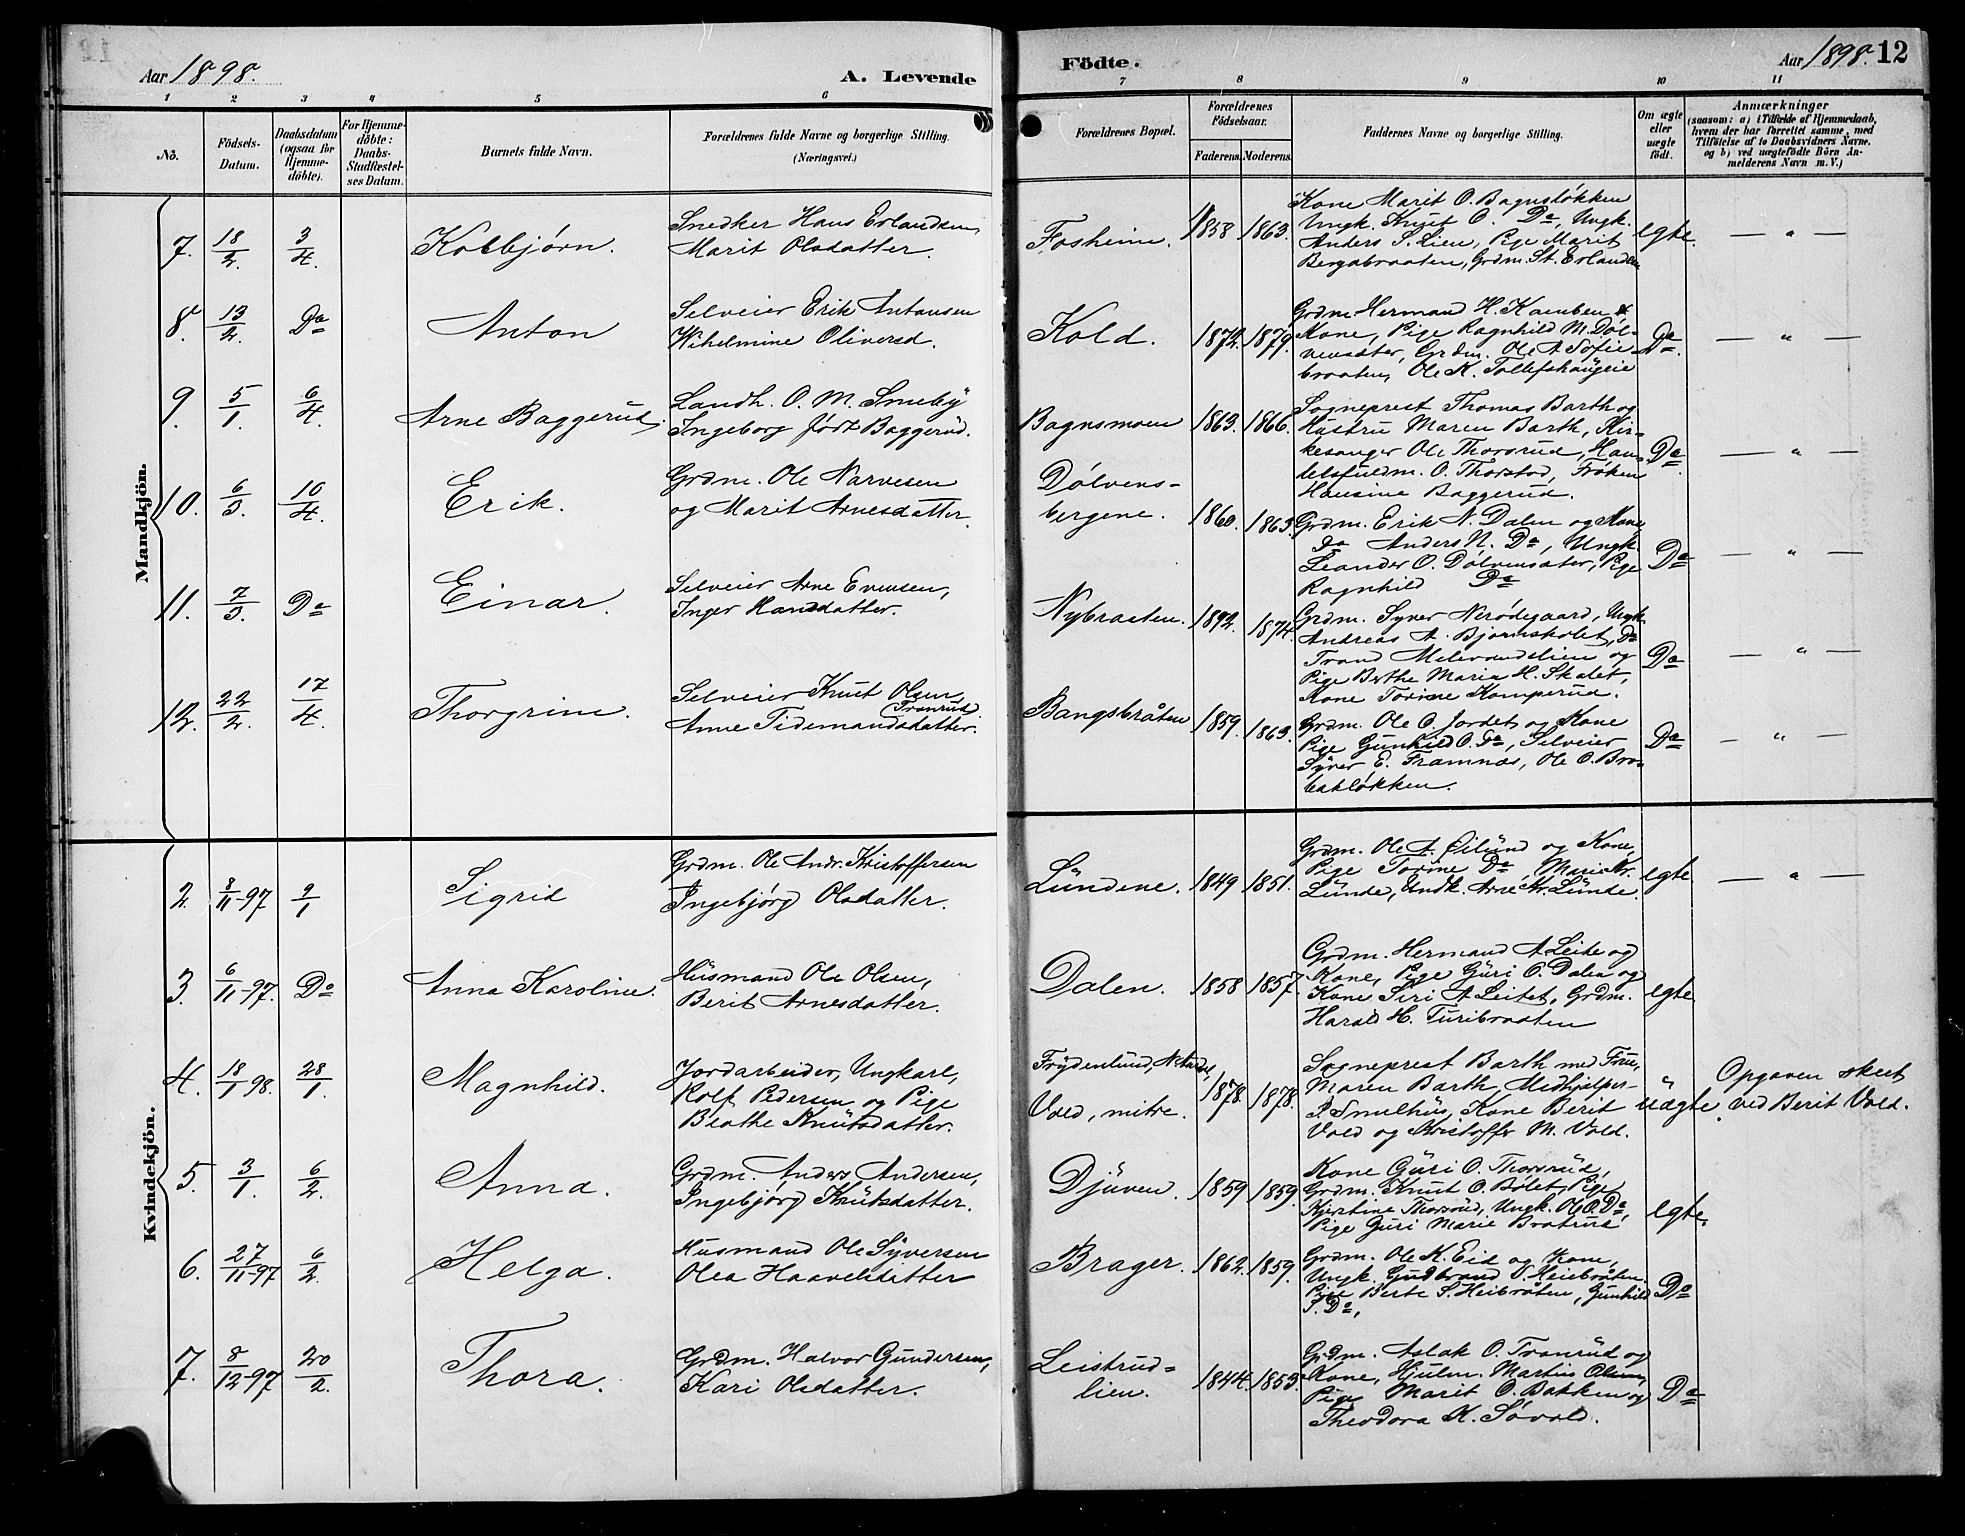 Aar 1898.
A. Levende
Fødte.
Aar 1898. 12
1 2 3 4 5 6 7 8 9 10 11
No.
Födsels-
Datum.
Daabsdatum
(ogsaa for
Hjemme-
döbte).
For Hjemme-
döbte:
Daabs-
Stadfæstel-
ses Datum.
Barnets fulde Navn.
Forældrenes fulde Navne og borgerlige Stilling.
(Næringsvei.)
Forældrenes Bopæl.
Forældrenes
Födselsaar.
Faderens. Moderens.
Faddernes Navne og borgerlige Stilling.
Om ægte
eller
uægte
født.
Anmærkninger
(saasom: a) i Tilfælde af Hjemmedaab,
hvem der har forrettet samme, med
Tilföielse af to Daabsvidners Navne,
og b) ved uægtefödte Börn An-
melderens Navn m. V.)
Mandkjön.
7. 18/2. 3/4. Kolbjørn.
Snedker Hans Erlandsen,
Marit Olsdatter.
Fosheim. 1858 1863.
Kone Marit O. Bagnsløkken
Ungk. Knut O. Do, Ungk.
Anders S. Lien, Pige Marit
Bergabraaten, Grdm. St. Erlandsen
egte. — „ —
8. 13/2. Do Anton
Selveier Erik Antonsen
Wihelmine Oliversd.
Kold. 1872. 1879.
Grdm. Hermand H. Kamben &
Kone, Pige Ragnhild M. Døl-
vensæter, Grdm. Ole A. Sofie-
braaten, Ole K. Tollefshaugeie
Do. — „ —
9. 5/1. 6/4. Arne Baggerud.
Landh. O. M. Smeby
Ingeborg født Baggerud.
Bagnsmoen 1863. 1866.
Sogneprest Thomas Barth og
Hustru Maren Barth, Kir-
kesanger Ole Thorsrud, Han-
delsfuldm. O. Thorstad, Frøken
Hansine Baggerud.
Do. — „ —
10. 6/3. 10/4. Erik.
Grdm. Ole Narvesen
og Marit Arnesdatter.
Dølvens-
bergene. 1860. 1863.
Grdm. Erik N. Dalen og Kone
Do Anders N. Do, Ungk.
Leander O. Dølvensæter, Pige
Ragnhild Do
Do — „ —
11. 7/3. Do Einar.
Selveier Arne Evensen,
Inger Hansdatter.
Nybraaten. 1892. 1874.
Grdm. Syver Nerødegaard, Ungk.
Andreas A. Bjørnskolet, Do
Trond Melevandslien og
Pige Berthe Maria H. Skalet,
Kone Torine Kamperud.
Do — „ —
12. 22/2. 17/4. Thorgrim.
Selveier Knut Olsen
Tranrud
Anne Tidemandsdatter.
Bangsbråten 1859. 1863.
Grdm. Ole O. Jordet og Kone
Pige Gunhild O. Do, Selveier
Syver E. Framnæs, Ole O. Bro-
batløkken.
Do — „ —
Kvindekjön.
2. 8/11-97 2/1 Sigrid
Grdm. Ole Andr. Kristoffersen
Ingebjørg Olsdatter.
Lündene. 1849 1851.
Grdm. Ole A. Øilünd og Kone,
Pige Torine Do, Marie Kr.
Lünde, Undk. Arne Kr. Lünde.
egte — „ —
3. 6/11-97. Do Anna Karoline.
Hüsmand Ole Olsen,
Berit Arnesdatter.
Dalen. 1858 1857.
Grdm. Hermand A Leite og
Kone, Pige Güri O. Dalen og
Kone Siri A Leitet, Grdm.
Harald H. Turibraaten
egte
4. 18/1 98. 28/1. Magnhild.
Jordarbeider, Ungkarl,
Rolf Pedersen og Pige
Beathe Knütsdatter.
Frydenlund, N. Aurdal,
Vold, mitre. 1878. 1878.
Sogneprest Barth med Frue,
Maren Barth, Medhjælper-
P. Smelhüs, Kone Berit
Vold og Kristoffer M. Vold.
uægte.
Opgaven skeet
ved Berit Vold.
5. 3/1. 6/2. Anna.
Grdm. Anders Andersen,
Ingebjørg Knütsdatter.
Djüven. 1859 1859.
Kone Güri O. Thorsrüd,
Grdm. Knut O. Bølet, Pige
Kjerstine Thorsrüd, Ungk. Ole O. Do,
Pige Guri Marie Bratrud
egte.
6. 27/11-97 6/2. Helga.
Husmand Ole Syversen
Olea Haavelsdatter
Brager. 1862. 1859.
Grdm. Ole K. Eid og Kone,
Ungk. Gudbrand S. Heiebråten.
Pige Berte S. Heibråten, Gunhild
S. Do,
Do
7. 8/12-97 20/2. Thora.
Grdm. Halvor Gundersen,
Kari Olsdatter.
Leistrud-
lien. 1844. 1853.
Grdm. Aslak O. Tranrüd og
Kone, Hjulm. Martius Olsen,
Pige Marit O. Bakken og
Theodora K. Søvold.
Do